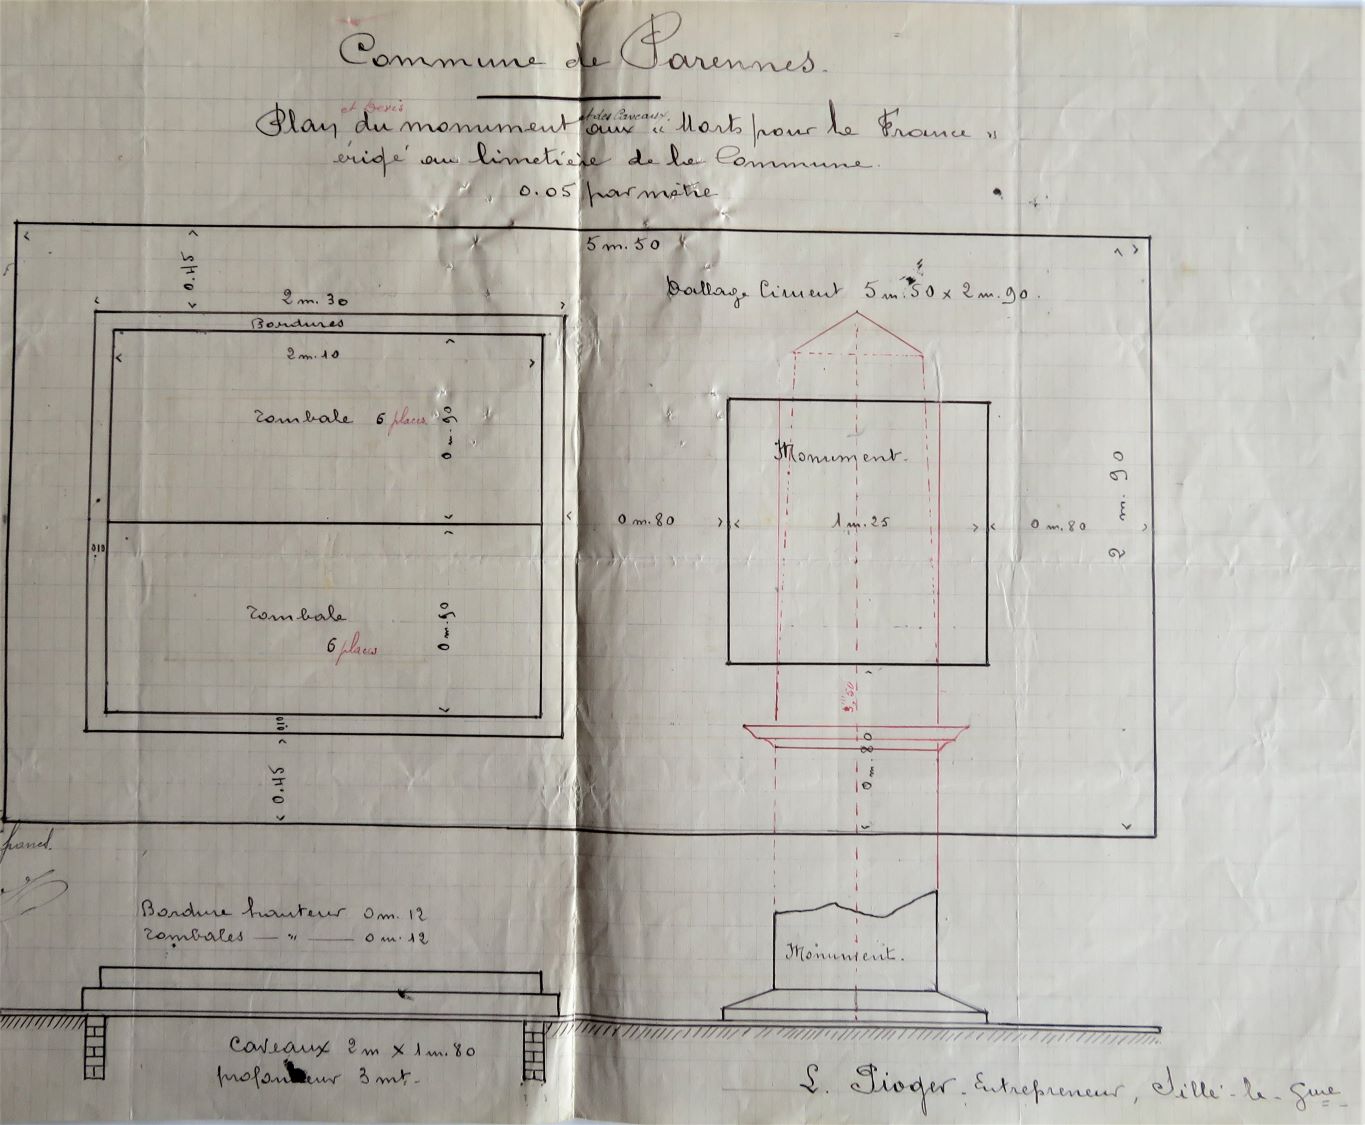 Commune de Parennes.
et Devis
et des Caveaux.
Plan du monument aux « Morts pour la France »
érigé au Cimetière de la Commune.
0.05 par mètre
5 m. 50
0.45
2 m. 30
Dallage Ciment 5 m. 50 x 2 m. 90.
Bordures
2 m. 10
Tombale 6 places
0 m. 90
Monument.
2 m. 90
0 m. 80
1 m. 25
0 m. 80
0.10
Tombale
0 m. 90
6 places
3m 50
0.10
0 m. 80
0.45
Bordure hauteur 0 m. 12
Tombales — " — 0 m. 12
Monument.
Caveaux 2 m x 1 m. 80
profondeur 3 mt.
L. Pioger. Entrepreneur, Sillé-le-Gme